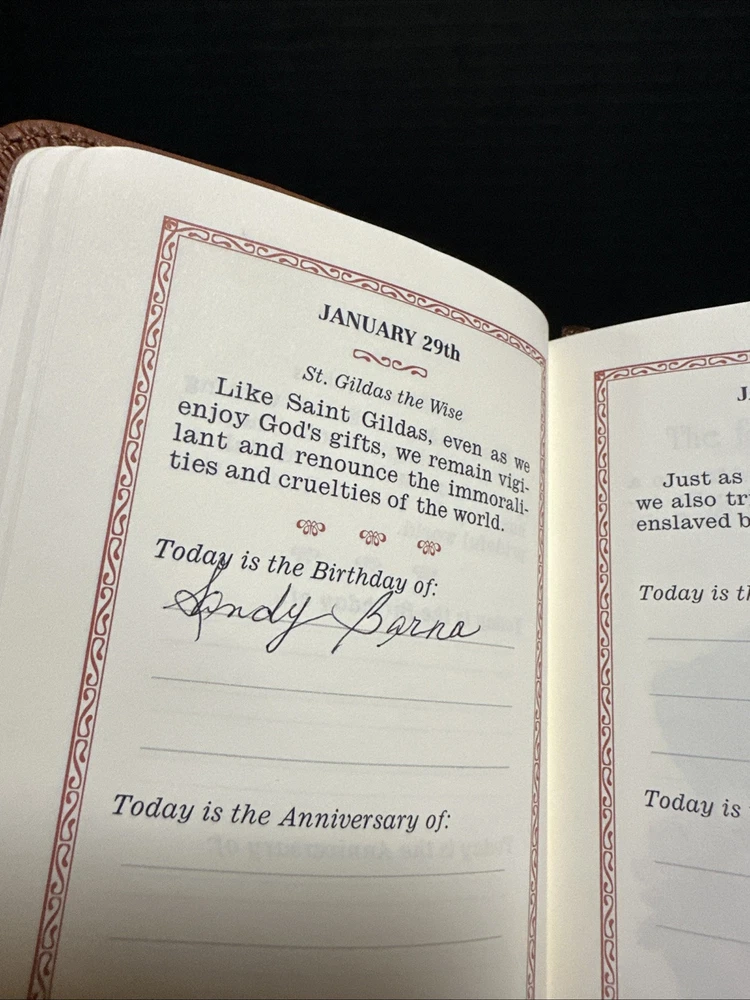 JANUARY 29th
St. Gildas the Wise
Like Saint Gildas, even as we
enjoy God's gifts, we remain vigi-
lant and renounce the immorali-
ties and cruelties of the world.
Today is the Birthday of:
Andy Barna
Today is the Anniversary of:
J
Just as
we also tr
enslaved b
Today is th
Today is